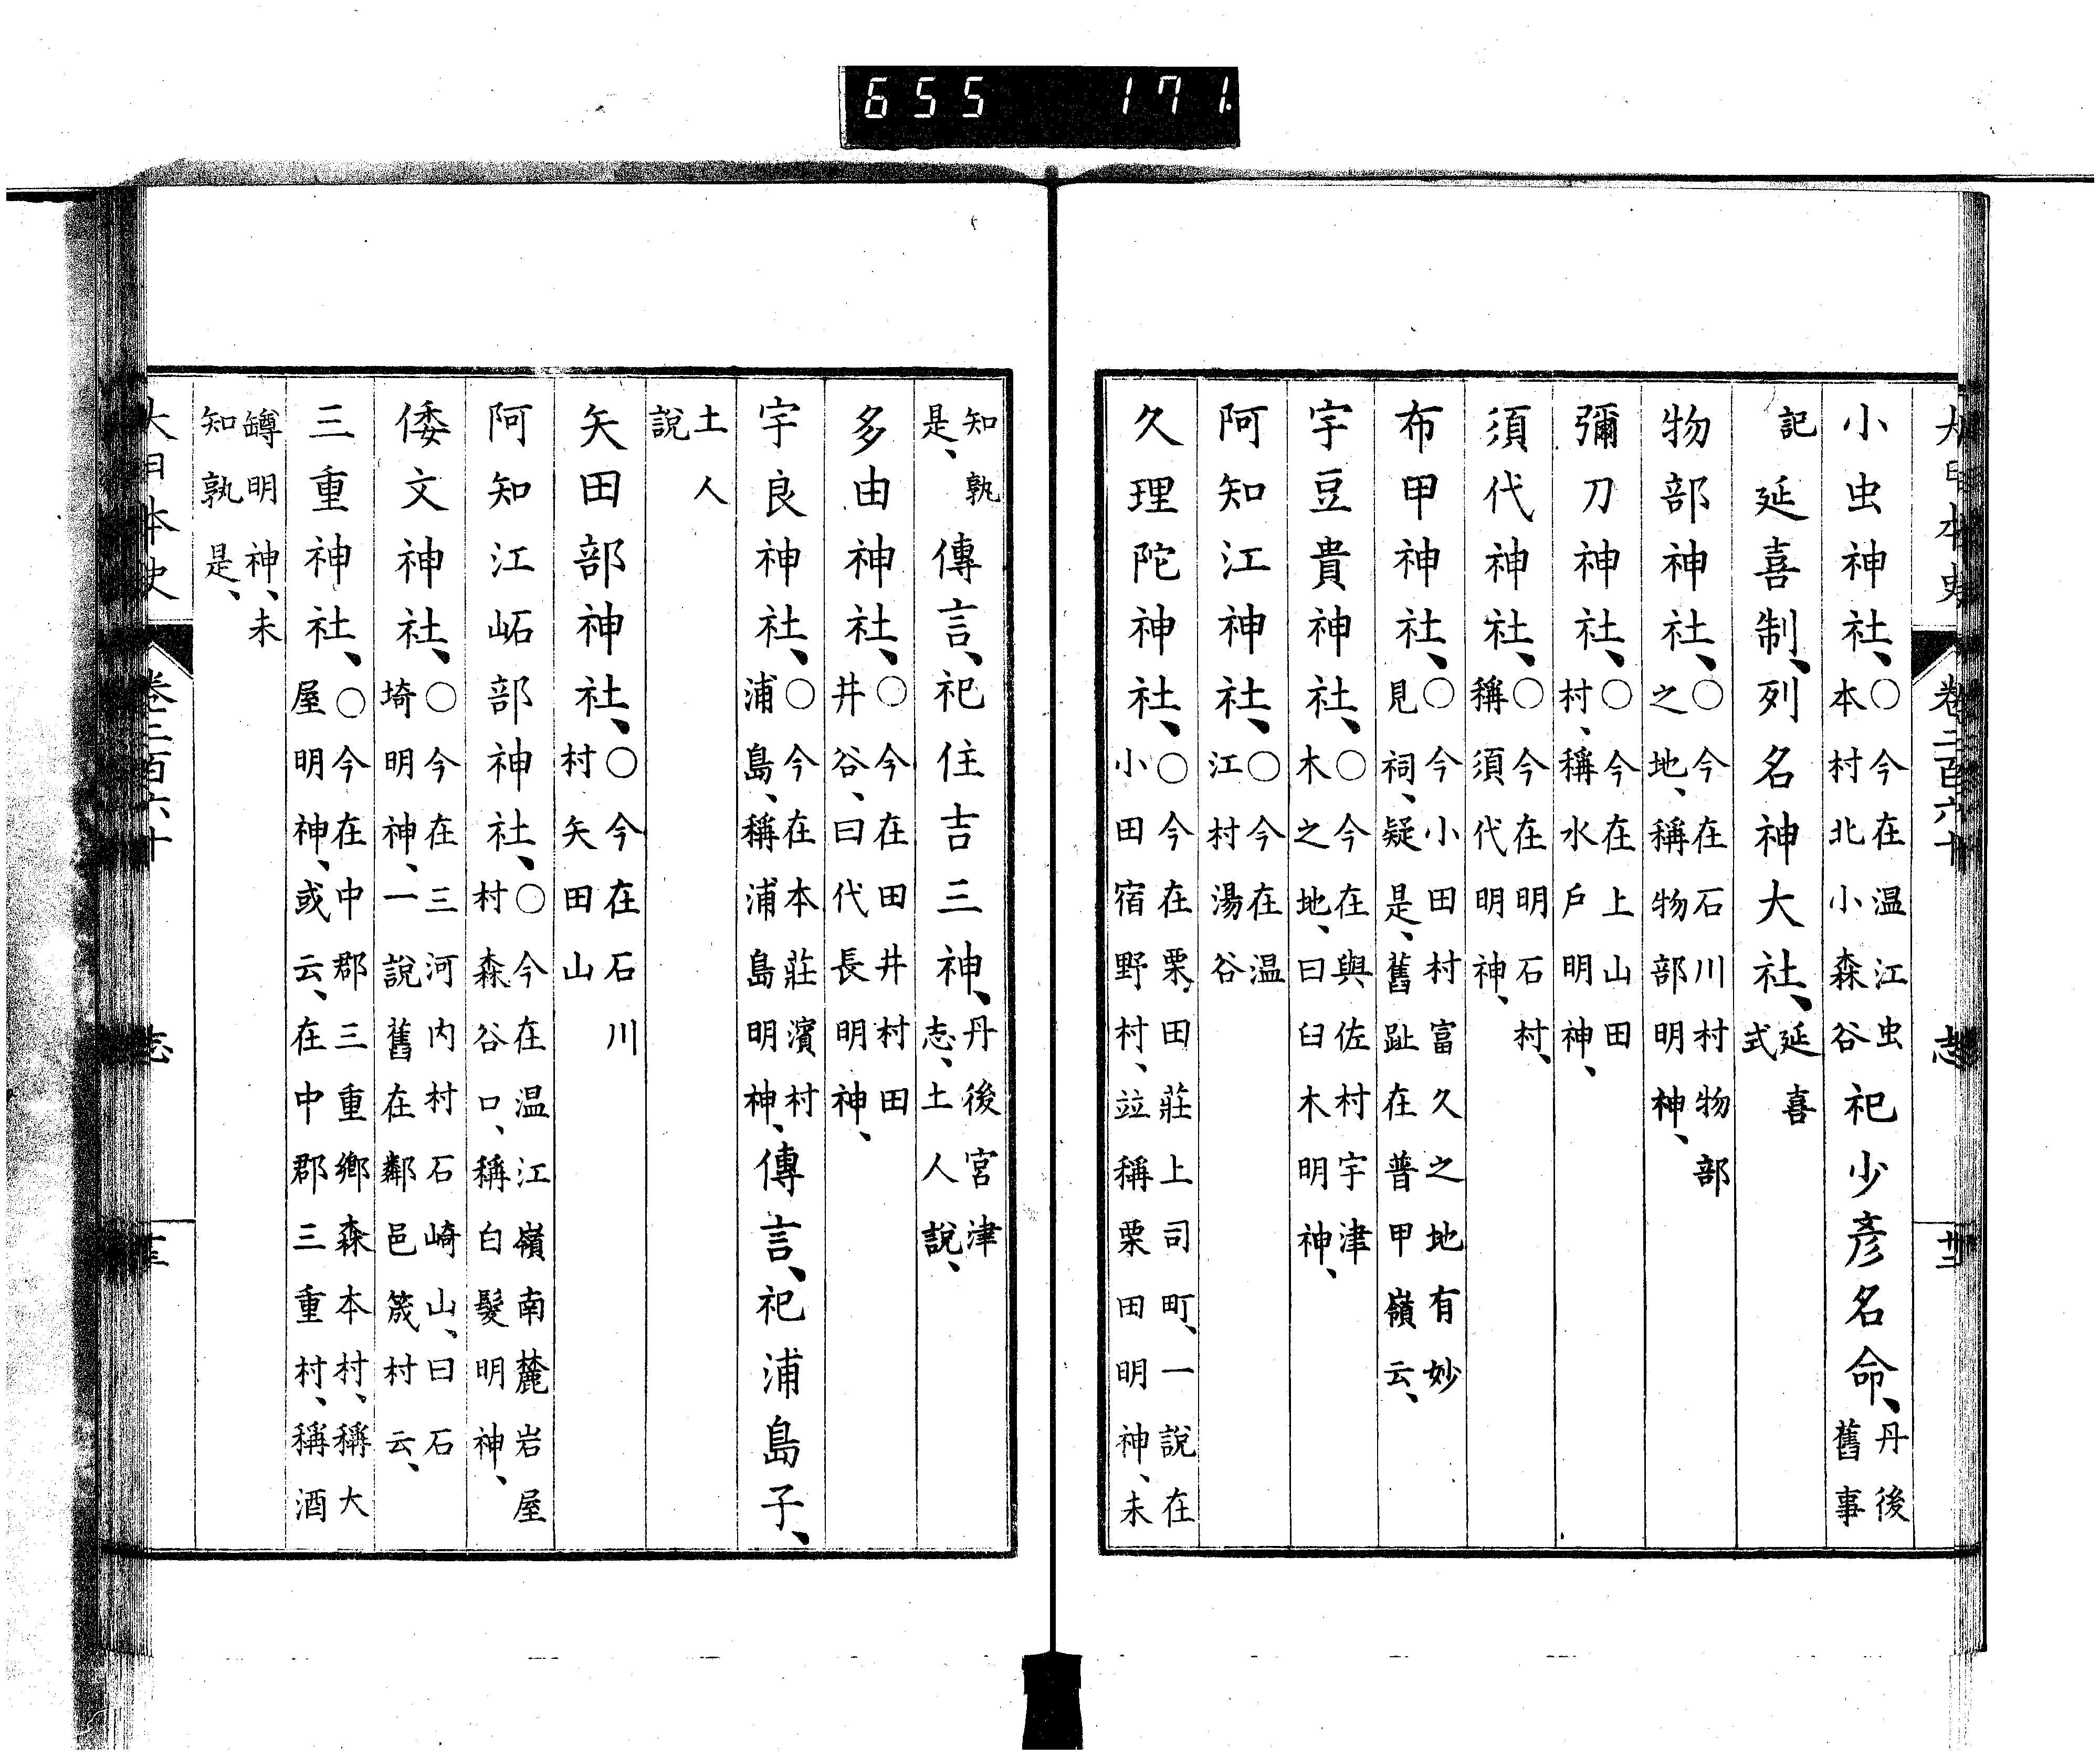 655 171
大日本史 卷二百六十 志 廿二
小虫神社、○今在温江虫本村北小森谷祀少彥名命、丹後舊事
記延喜制、列名神大社、延喜式
物部神社、○今在石川村物部之地、稱物部明神、
彌刀神社、○今在上山田村、稱水戶明神、
須代神社、○今在明石村、稱須代明神、
布甲神社、○今小田村富久之地有妙見祠、疑是、舊趾在普甲嶺云、
宇豆貴神社、○今在與佐村宇津木之地、曰臼木明神、
阿知江神社、○今在温江村湯谷
久理陀神社、○今在栗田莊上司町、一說在小田宿野村、竝稱栗田明神、未
知孰是、傳言、祀住吉三神、丹後宮津志、土人說、
多由神社、○今在田井村田井谷、曰代長明神、
宇良神社、○今在本莊濱村浦島、稱浦島明神、傳言、祀浦島子、
土人說
矢田部神社、○今在石川村矢田山
阿知江㟁部神社、○今在温江嶺南麓岩屋村森谷口、稱白髮明神、
倭文神社、○今在三河內村石崎山、曰石埼明神、一說舊在鄰邑筬村云、
三重神社、○今在中郡三重鄉森本村、稱大屋明神、或云、在中郡三重村、稱酒
罇明神、未知孰是、
大日本史 卷二百六十 志